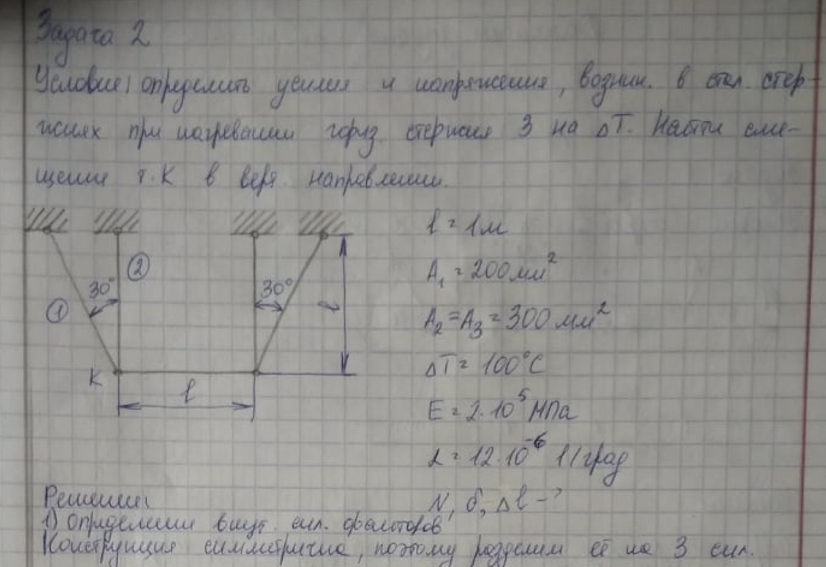 Задача 2
Условие: определить усилия и напряжения, возник. в стал. стер-
жнях при нагревании гориз. стержня 3 на ΔT. Найти сме-
щение т. К в верт. направлении.
l = 1м
A₁ = 200 мм²
A₂ = A₃ = 300 мм²
ΔT = 100°C
E = 2·10⁵ МПа
α = 12·10⁻⁶ 1/град
N, б, Δl - ?
30°
②
30°
①
l
К
l
Решение:
1) Определим внут. сил. факторов
Конструкция симметрична, поэтому разделим её на 3 сил.